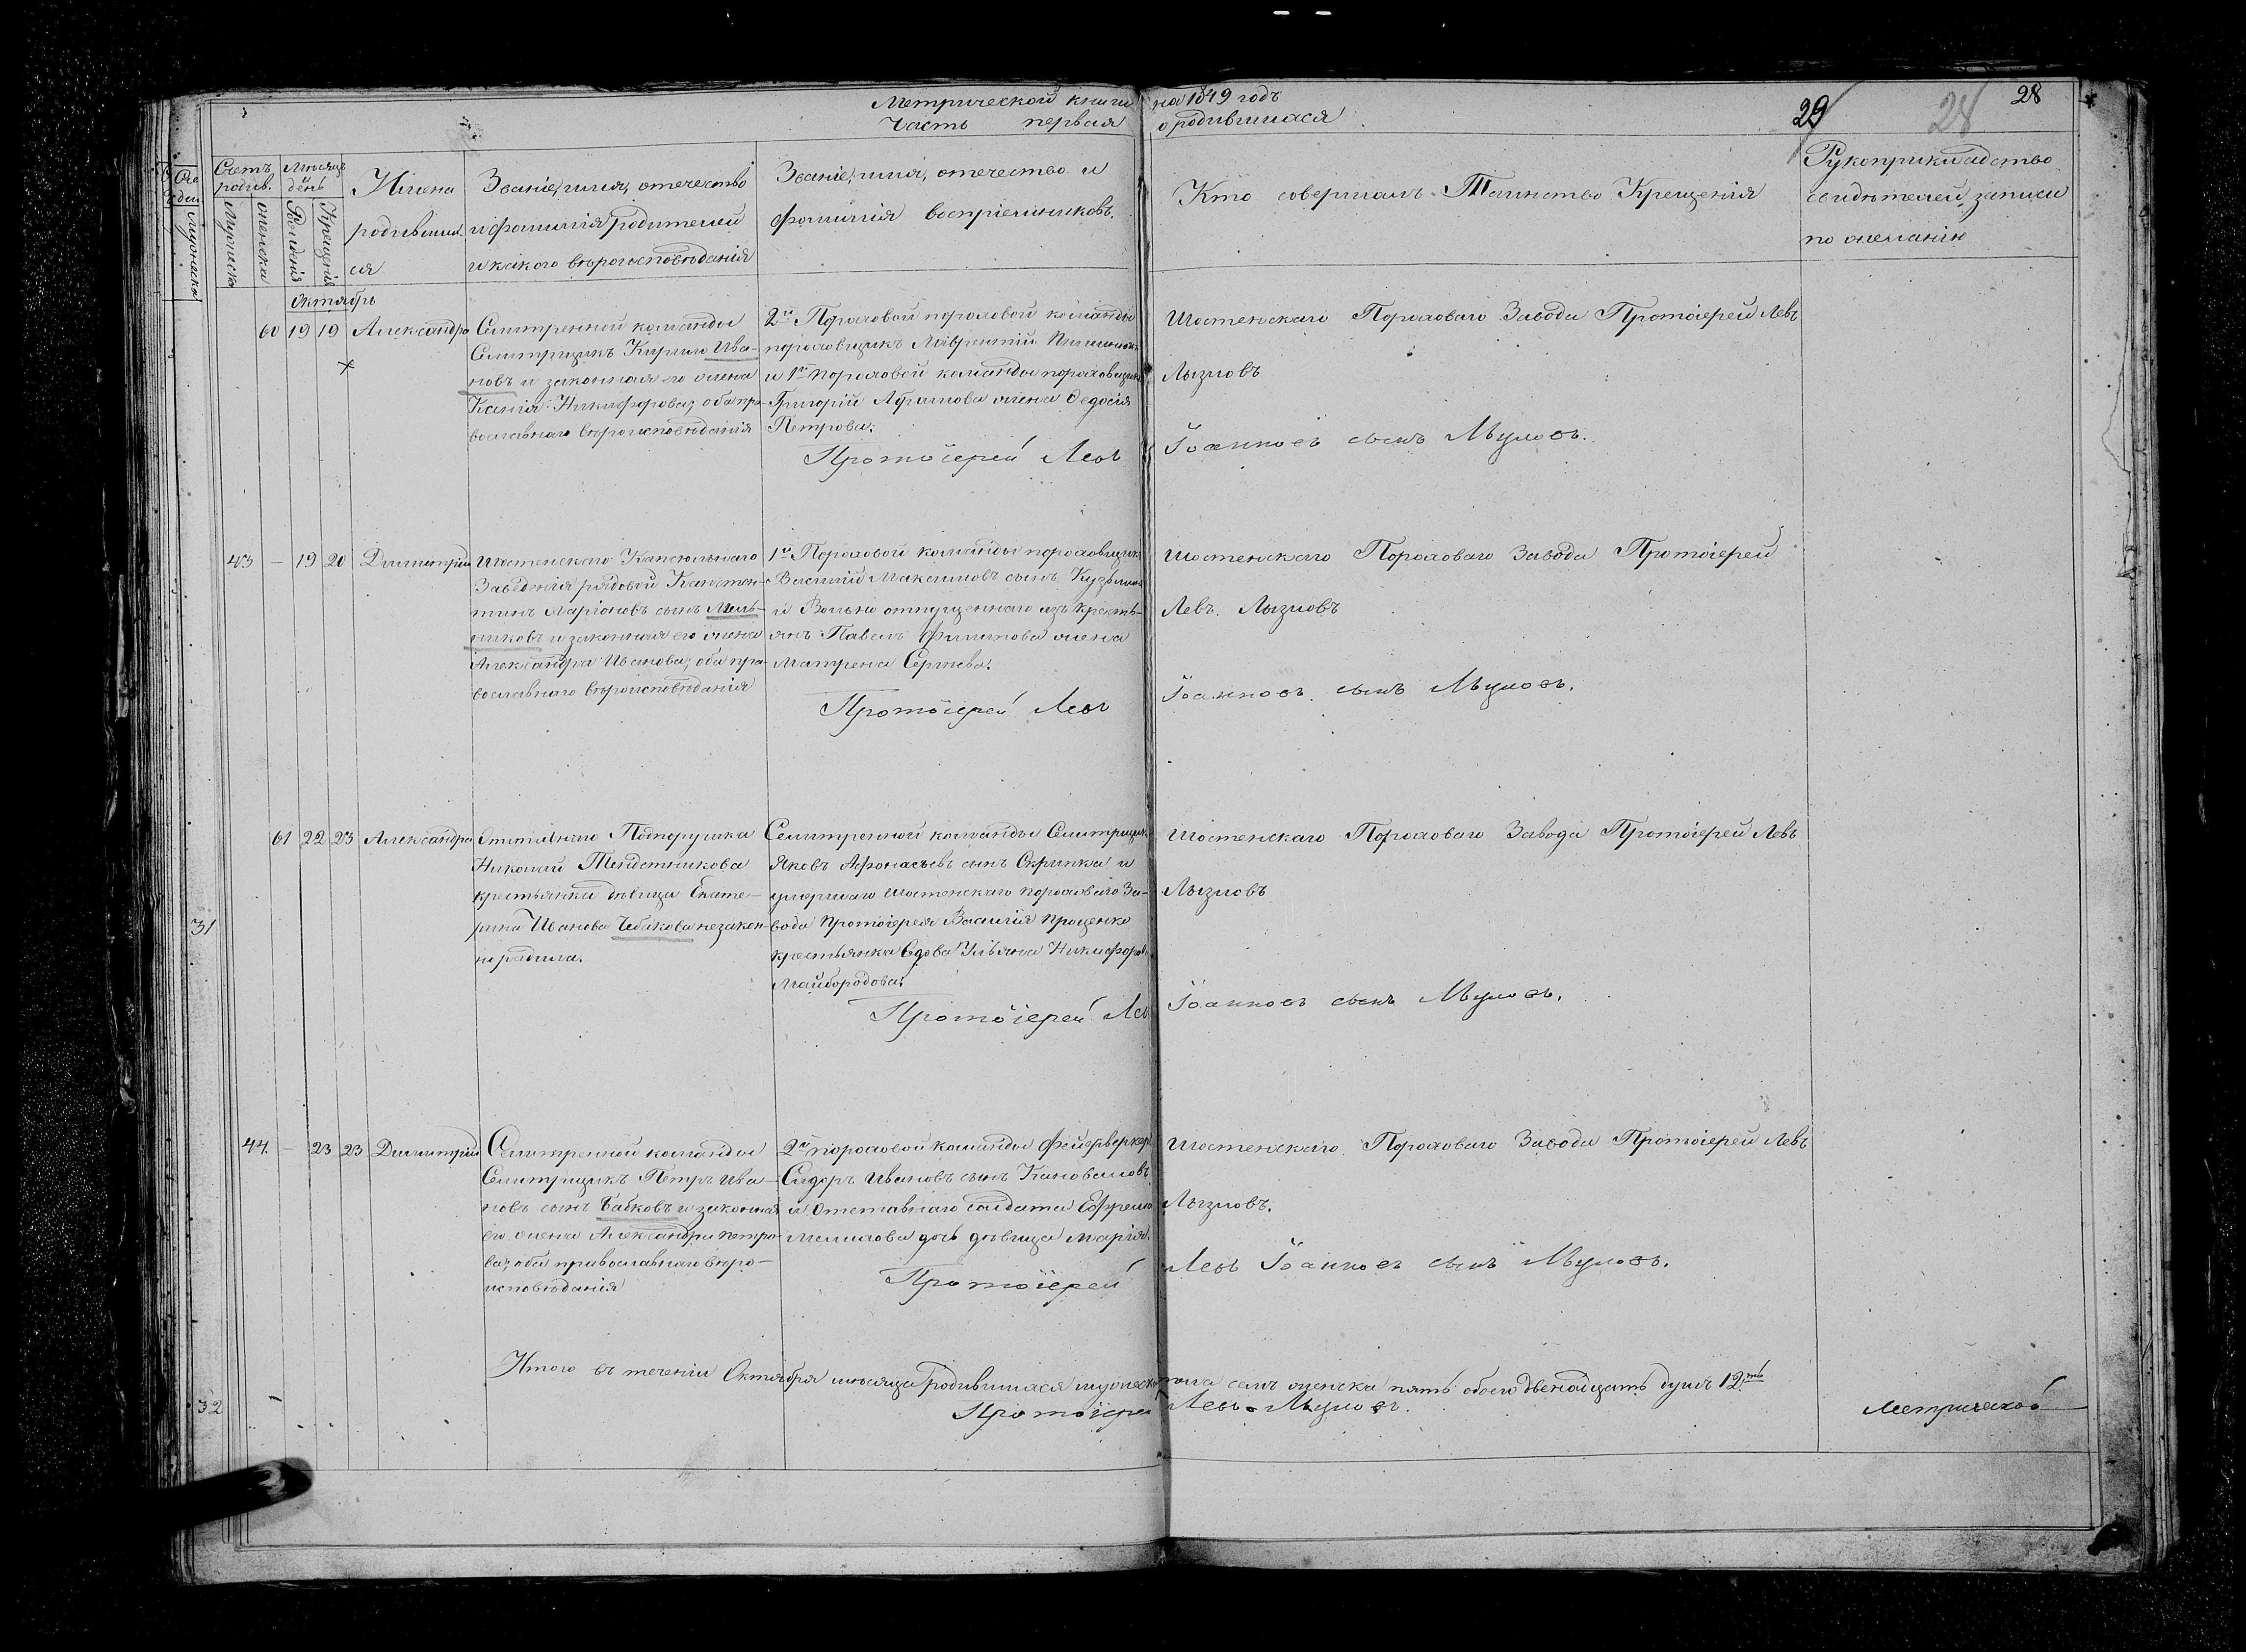 Метрической книги на 1849 годъ
Часть первая о родившихся
29 28 28
Счетъ родив.
Мужеска
женска
Мѣсяцъ день
Рожденія
Крещенія
Имена родившихся
Званіе, имя, отечество
и фамилія родителей
и какого вѣроисповѣданія
Званіе, имя, отечество и
фамилія воспріемниковъ.
Кто совершалъ Таинство Крещенія
Рукоприкладство
свидѣтелей записи
по желанію
Октябрь
60 19 19 Александра
Селитренной команды
Селитрщикъ Кирило Ива-
новъ и законная его жена
Ксенія Никифорова; оба пра-
вославнаго вѣроисповѣданія
2й Пороховой пороховой команды
пороховщикъ Лаврентій
и 1й пороховой команды пороховщика
Григорій жена Федосія
Петрова.
Шостенскаго Пороховаго Завода Протоіерей Левъ
Лызловъ
Протоіерей Левъ Іоанновъ сынъ Лызловъ.
43 — 19 20 Димитрій
Шостенскаго Капсюльнаго
Заведенія рядовой Констан-
тинъ Ларіоновъ сынъ Мель-
никовъ и законная его жена
Александра Иванова; оба пра-
вославнаго вѣроисповѣданія
1й Пороховой команды пороховщикъ
Василій Максимовъ сынъ Кузьмин
и Вольно отпущеннаго изъ кресть-
янъ Павелъ Филипова жена
Матрена Сергѣева.
Шостенскаго Пороховаго Завода Протоіерей
Левъ Лызловъ
Протоіерей Левъ Іоанновъ сынъ Лызловъ.
61 22 23 Александра
Подпорушка
Николай
крестьянка дѣвица Екате-
рина Иванова незакон-
но родила.
Селитренной команды Селитрщикъ
Яковъ Афонасьевъ сынъ Скрипка и
умершаго Шостенскаго пороховаго За-
вода Протоіерея Василія Проценко
крестьянка вдова Ульяна Никифоров
Майбородова.
Шостенскаго Пороховаго Завода Протоіерей Левъ
Лызловъ
Протоіерей Левъ Іоанновъ сынъ Лызловъ.
31
44. — 23 23 Димитрій
Селитренной команды
Селитрщикъ Петръ Ива-
новъ сынъ Бабковъ и законная
его жена Александра Петро-
ва; оба православнаго вѣро-
исповѣданія
2й пороховой команды фейерверкеръ
Сидоръ Ивановъ сынъ Коноваловъ
и Отставнаго солдата Ефрема
дочь дѣвица Марія.
Шостенскаго Пороховаго Завода Протоіерей Левъ
Лызловъ.
Протоіерей Левъ Іоанновъ сынъ Лызловъ.
Итого въ теченіи Октября мѣсяца родившихся мужеска пола семь женска пять обоего двенадцать душъ 12ть
Протоіерей Левъ Лызловъ.
32
Метрической